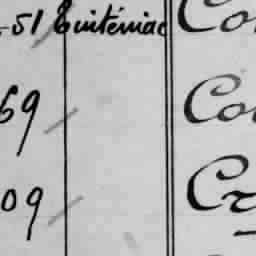 51 Cuiténiac Co
69 Co
09 Cr